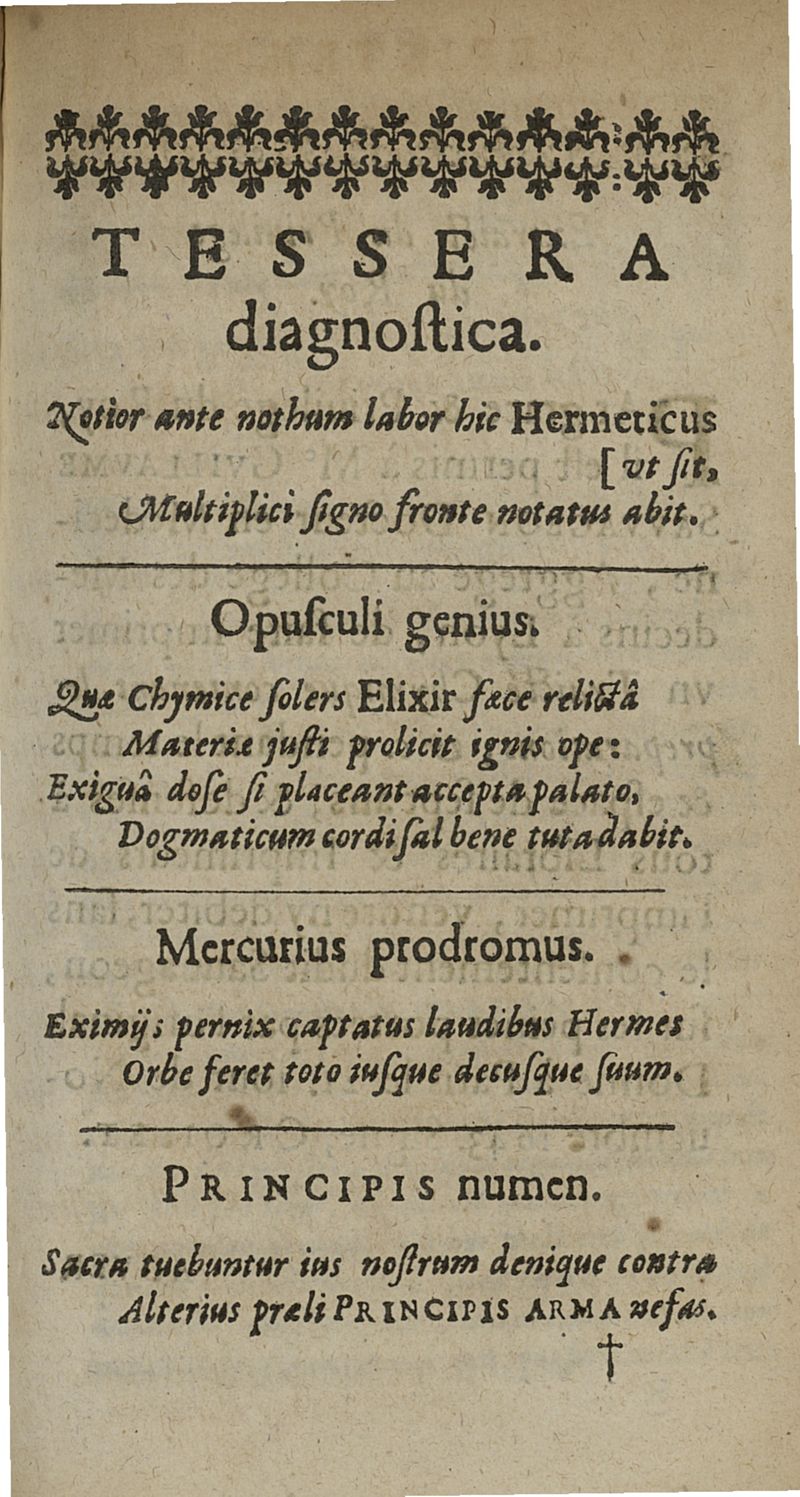 TESSERA
diagnoſtica.
Notior ante nothum labor hic Hermeticus
[ vt ſit,
Multiplici ſigno fronte notatus abit.
Opuſculi genius.
Quæ Chymice ſolers Elixir fæce relictâ
Materiæ juſti prolicit ignis ope:
Exiguâ doſe ſi placeant accepta palato,
Dogmaticum cordi ſal bene tuta dabit.
Mercurius prodromus.
Eximijs pernix captatus laudibus Hermes
Orbe feret toto iuſque decuſque ſuum.
PRINCIPIS numen.
Sacra tuebuntur ius noſtrum denique contra
Alterius præli PRINCIPIS ARMA nefas.
†